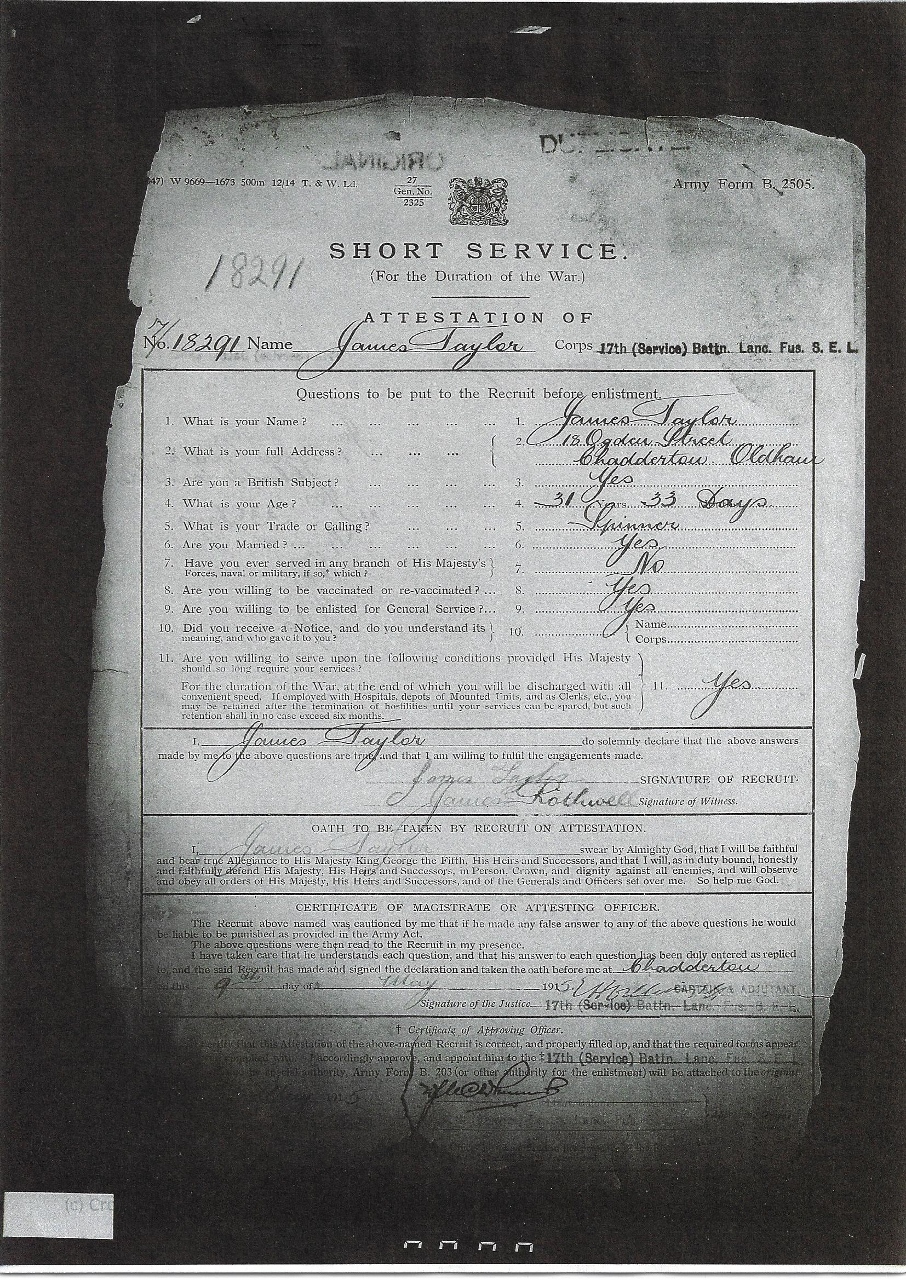 ORIGINAL
DUPLICATE
47) W 9669—1673 500m 12/14 T. & W. Ld.
27
Gen. No.
2325
Army Form B. 2505.
SHORT SERVICE.
18291
(For the Duration of the War.)
ATTESTATION OF
No. 18291 Name James Taylor Corps 17th (Service) Battn. Lanc. Fus. S. E. L.
Questions to be put to the Recruit before enlistment.
1. What is your Name? ... ... ... ... 1. James Taylor
2. What is your full Address? ... ... ... 2. 18 Ogden Street
Chadderton Oldham
3. Are you a British Subject? ... ... ... 3. Yes
4. What is your Age? ... ... ... ... 4. 31 Years 33 Days
5. What is your Trade or Calling? ... ... ... 5. Spinner
6. Are you Married? ... ... ... ... ... 6. Yes
7. Have you ever served in any branch of His Majesty's
Forces, naval or military, if so,* which? 7. No
8. Are you willing to be vaccinated or re-vaccinated? ... 8. Yes
9. Are you willing to be enlisted for General Service? ... 9. Yes
10. Did you receive a Notice, and do you understand its
meaning, and who gave it to you? 10. Name
Corps
11. Are you willing to serve upon the following conditions provided His Majesty
should so long require your services?
For the duration of the War, at the end of which you will be discharged with all
convenient speed. If employed with Hospitals, depots of Mounted Units, and as Clerks, etc., you
may be retained after the termination of hostilities until your services can be spared, but such
retention shall in no case exceed six months. 11. Yes
I, James Taylor do solemnly declare that the above answers
made by me to the above questions are true, and that I am willing to fulfil the engagements made.
James Taylor SIGNATURE OF RECRUIT.
James Rothwell Signature of Witness.
OATH TO BE TAKEN BY RECRUIT ON ATTESTATION.
I, James Taylor swear by Almighty God, that I will be faithful
and bear true Allegiance to His Majesty King George the Fifth, His Heirs and Successors, and that I will, as in duty bound, honestly
and faithfully defend His Majesty, His Heirs and Successors, in Person, Crown, and dignity against all enemies, and will observe
and obey all orders of His Majesty, His Heirs and Successors, and of the Generals and Officers set over me. So help me God.
CERTIFICATE OF MAGISTRATE OR ATTESTING OFFICER.
The Recruit above named was cautioned by me that if he made any false answer to any of the above questions he would
be liable to be punished as provided in the Army Act.
The above questions were then read to the Recruit in my presence.
I have taken care that he understands each question, and that his answer to each question has been duly entered as replied
to, and the said Recruit has made and signed the declaration and taken the oath before me at Chadderton
on this 9th day of May 1915 CAPTAIN & ADJUTANT
Signature of the Justice 17th (Service) Battn. Lanc. Fus. S. E. L.
† Certificate of Approving Officer.
certify that this Attestation of the above-named Recruit is correct, and properly filled up, and that the required forms appear
I accordingly approve, and appoint him to the ‡ 17th (Service) Battn. Lanc. Fus. S. E. L.
special authority, Army Form B. 203 (or other authority for the enlistment) will be attached to the original
(c) Cr